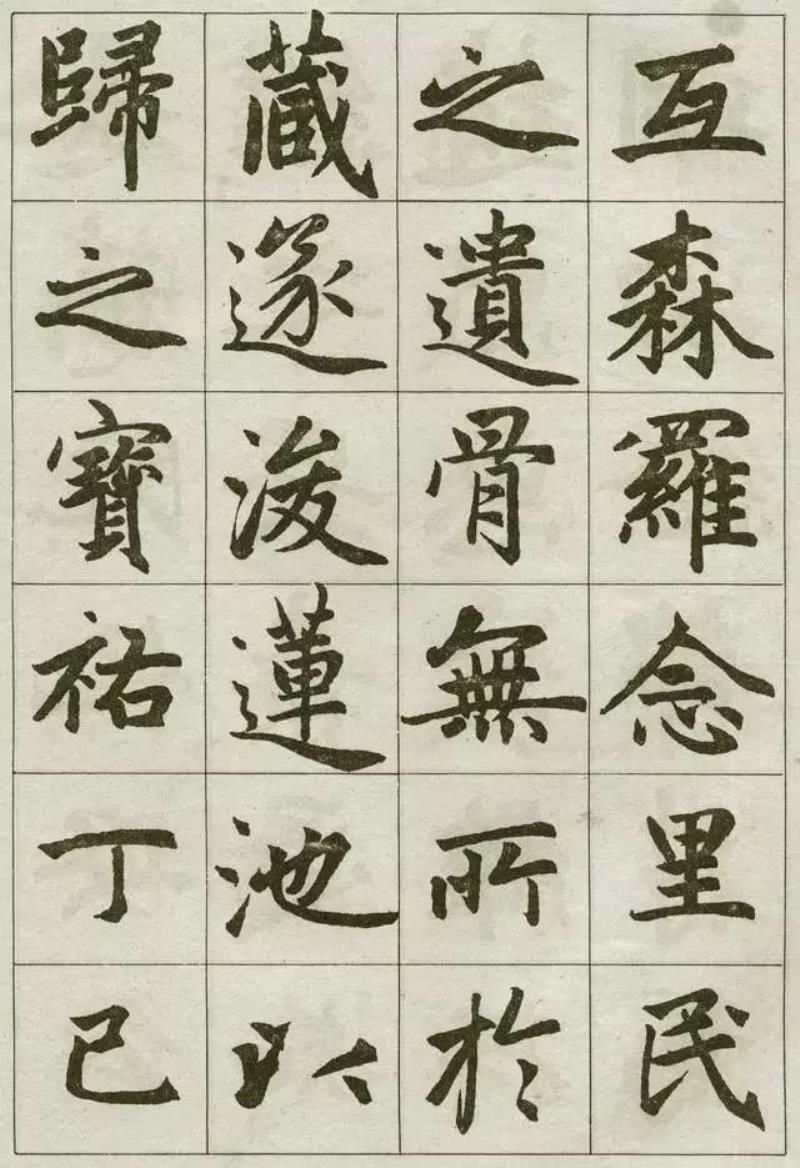 互森羅念里民
之遺骨無所於
蔵遂浚蓮池以
歸之寶祐丁巳